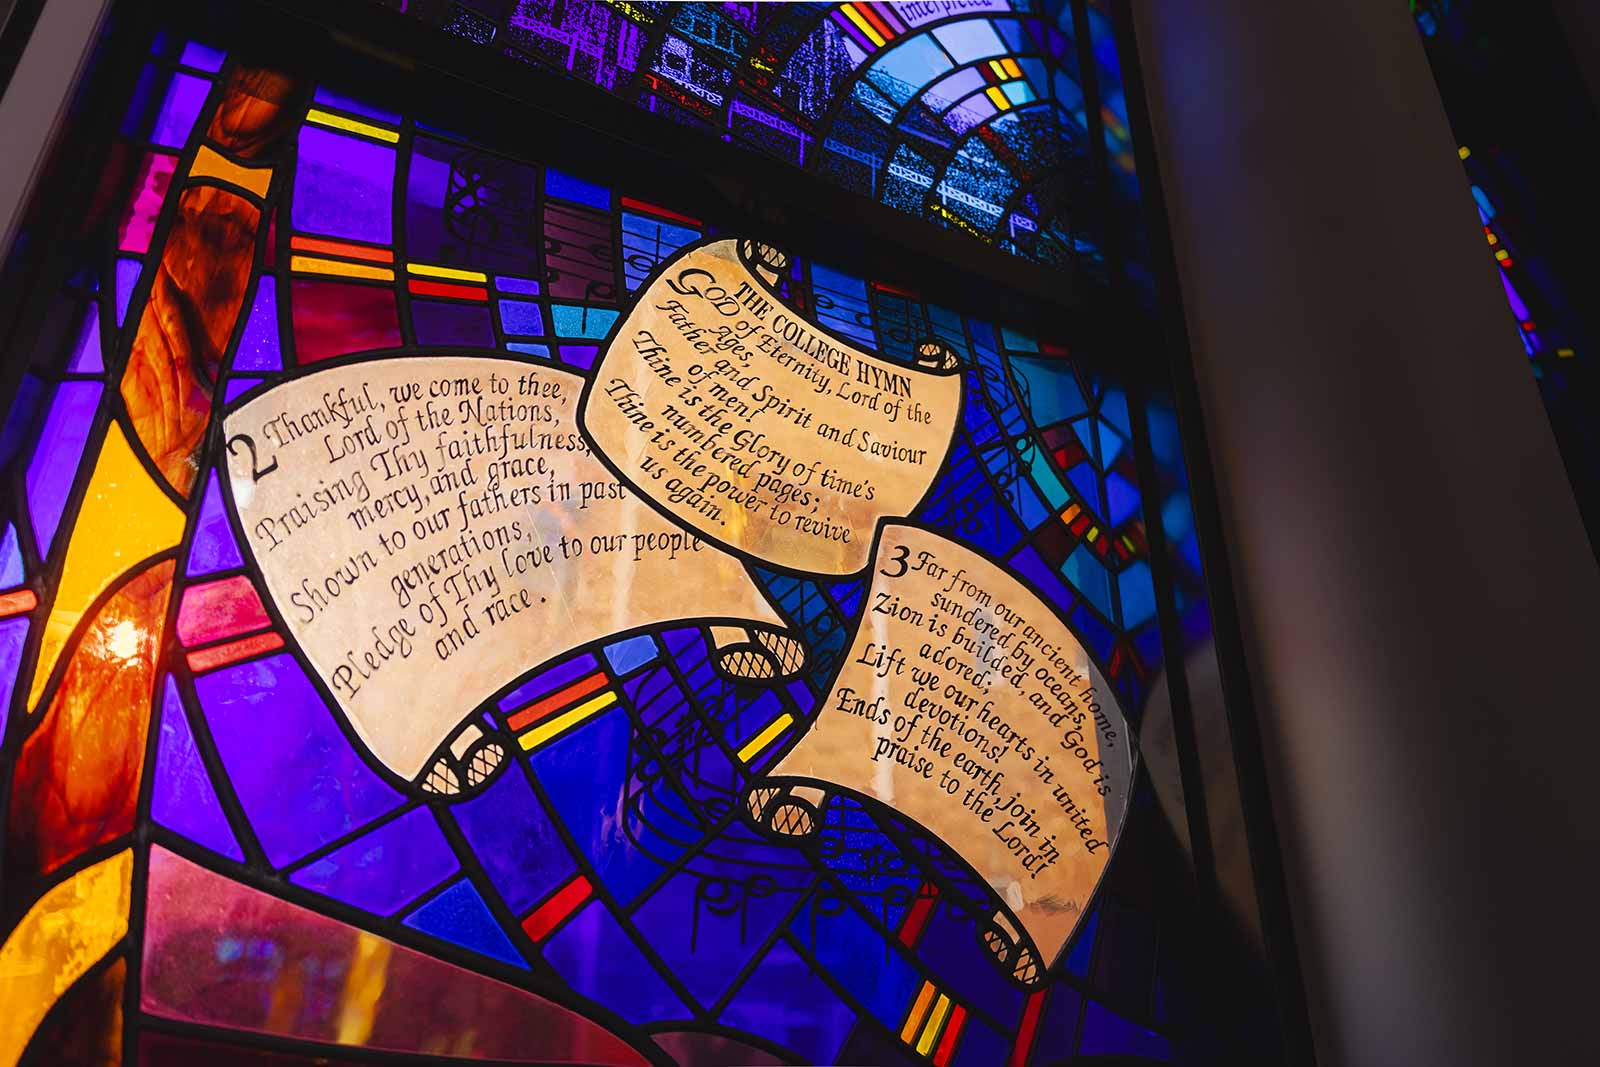 interpreted
THE COLLEGE HYMN
GOD of Eternity, Lord of the
Ages,
Father and Spirit and Saviour
of men!
Thine is the Glory of time's
numbered pages;
Thine is the power to revive
us again.
2 Thankful, we come to thee,
Lord of the Nations,
Praising Thy faithfulness,
mercy, and grace,
Shown to our fathers in past
generations,
Pledge of Thy love to our people
and race.
3 Far from our ancient home,
sundered by oceans,
Zion is builded, and God is
adored;
Lift we our hearts in united
devotions!
Ends of the earth, join in
praise to the Lord!